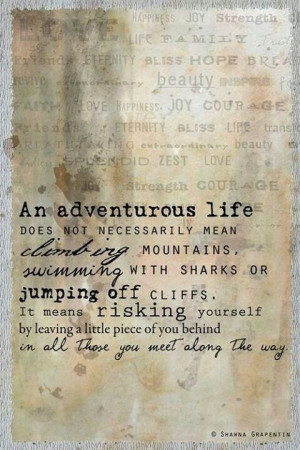 HAPPINESS JOY Strength
LOVE LIFE FAMILY
Friends ETERNITY BLISS HOPE
beauty
FAITH LOVE HAPPINESS JOY COURAGE
Friends ETERNITY BLISS LIFE
extraordinary beauty
SPLENDID ZEST LOVE
Strength COURAGE
An adventurous life
DOES NOT NECESSARILY MEAN
climbing MOUNTAINS,
swimming WITH SHARKS OR
jumping off CLIFFS.
It means risking yourself
by leaving a little piece of you behind
in all those you meet along the way.
© SHANNA GRAPENTIN